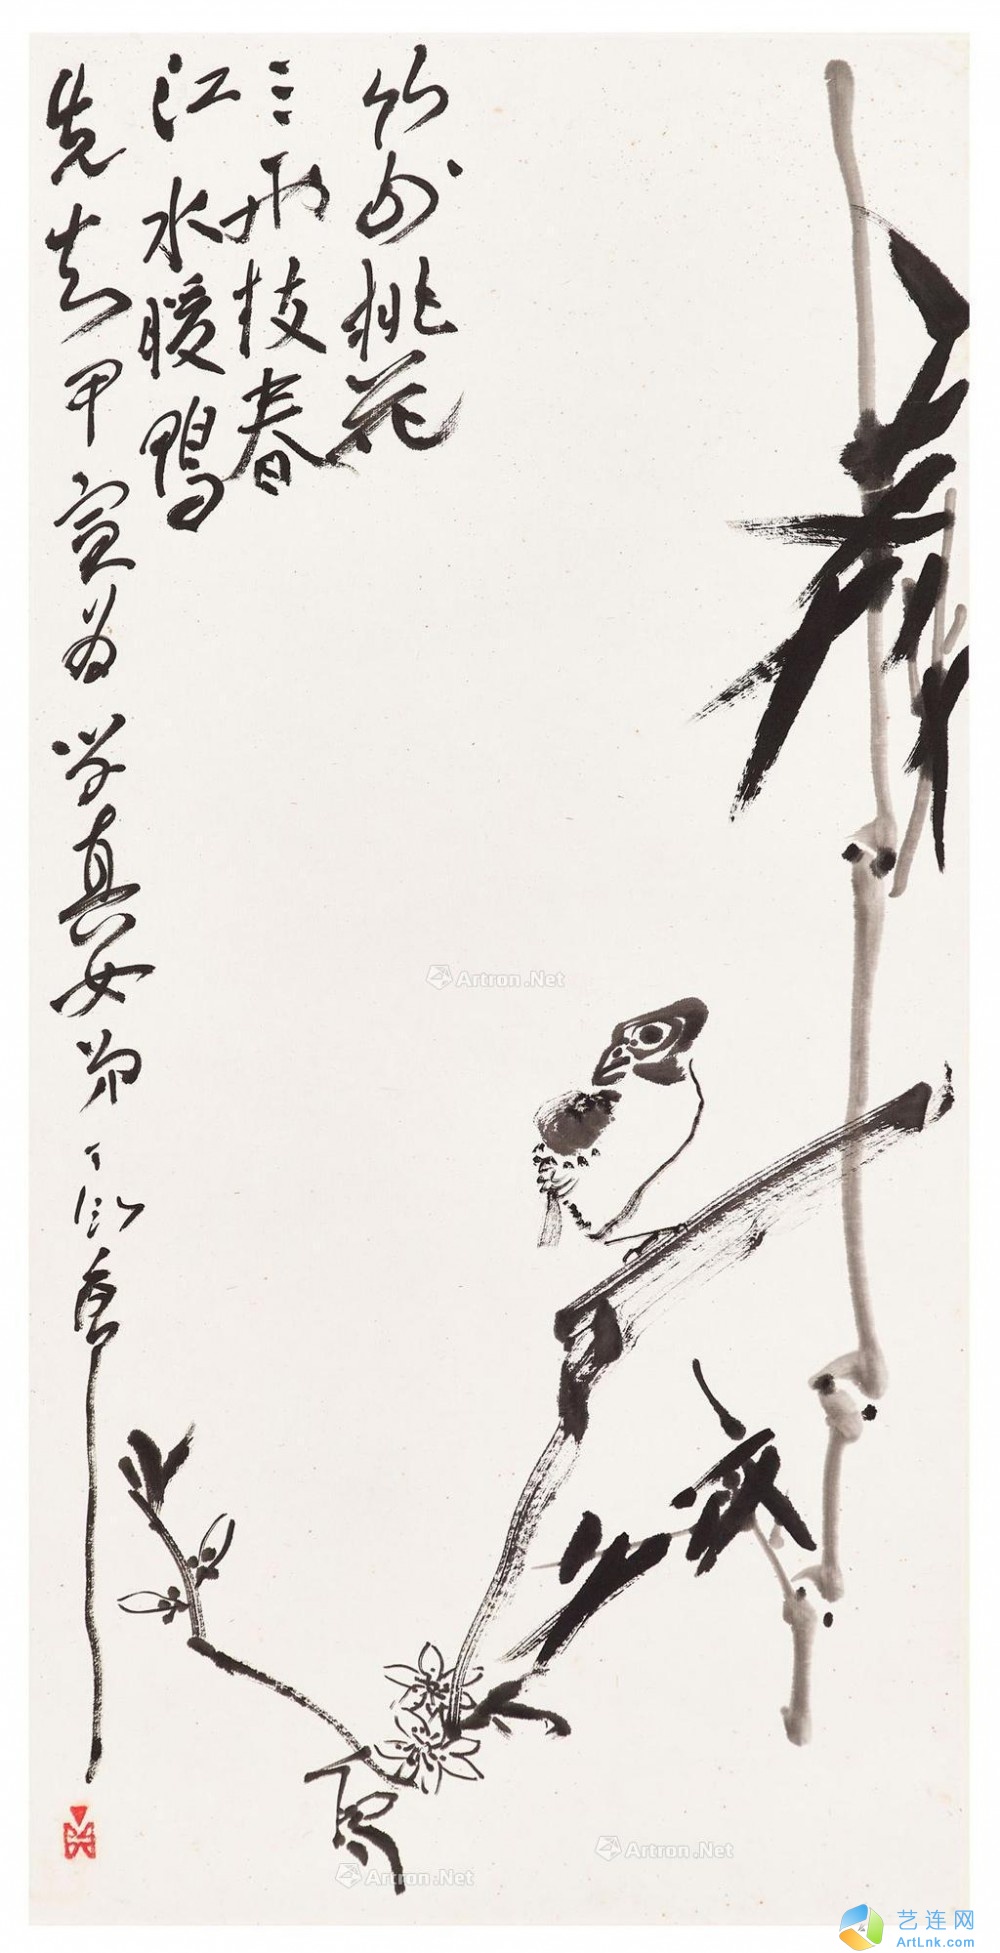 竹外桃花
三两枝春
江水暖鸭
先知甲寅为学真女弟丁衍庸
Artron.Net
Artron.Net
Artron.Net
艺连网
ArtLnk.com